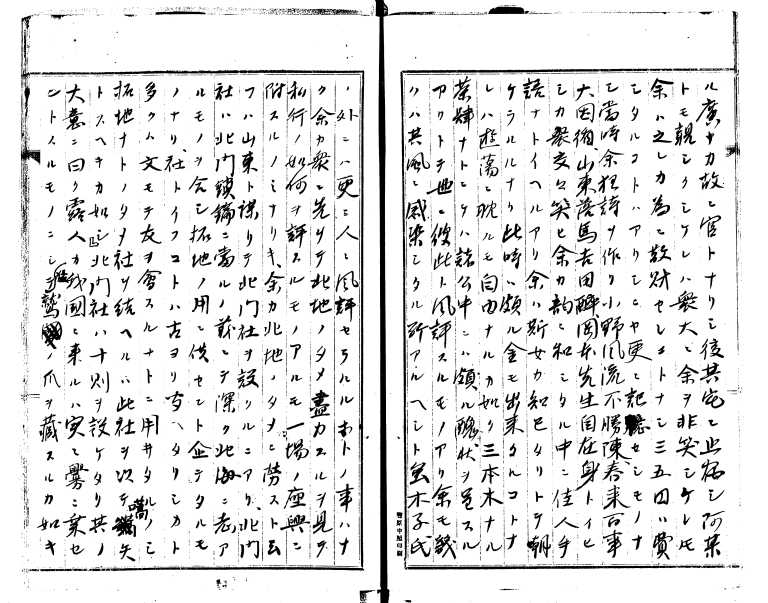 ル廣ナカ故ニ官トナリシ後其宅ニ止宿シ阿某
トモ親シクシケレハ衆大ニ余ヲ非笑シケレ𪜈
余ハ之レカ為ニ散財セシコトナシ三五回ハ費
シタルコトハアリシニヤ更ニ記憶セシモノナ
シ當時余狂詩ヲ作リ小野風流不勝陳春来百事
大因循山東落馬吉田醉岡本先生自在身トイヒ
シカ衆交々笑ヒ余カ韵ニ和シタル中ニ佳人手
語ナトイヘルアリ余ハ斯女カ知己タリトテ朝
ケラルルナリ此時ハ頗ル金モ出来タルコトナ
レハ遊蕩ニ耽ルモ自由ナルカ如ク三本木ナル
茶肆ナトニケハ諸公中ニハ頗ル醜状ヲ呈スル
アリトテ世ニ彼此ト風評スルモノアリ余モ幾
クハ其風ニ感染シタル所アルヘシト𧈧木子氏
ノ外ニハ更ニ人ニ風評セラルルホトノ事ハナ
ク余カ衆ニ先リテ北地ノタメ盡力スルヲ見テ
私行ノ如何ヲ評スルモノアルモ一場ノ座興ニ
附スルノミナリキ余カ北地ノタメニ勞スト云
フハ山東ト謀リテ北門社ヲ設クルニアリ北門
社ハ北門鎖鑰ニ當ルノ義ニテ深ク北海ニ志ア
ルモノヲ会シ拓地ノ用ニ供セント企テタルモ
ノナリ社トイフコトハ古ヨリ有ヘタリシカト
多クハ文モテ友ヲ會スルナトニ用井タルノミ
拓地ナトノタメ社ヲ結ヘルハ此社ヲ以テ嚆矢
トスヘキカ如シ北門社ハ十則ヲ設ケタリ其ノ
大意ニ曰ク露人カ我國ニ来ルハ実ニ釁ニ棄セ
ントスルモノニシテ鷙ノ爪ヲ藏スルカ如キ